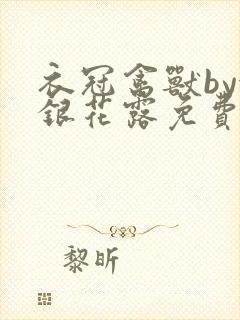 衣冠禽獸by
銀花露免費
黎昕